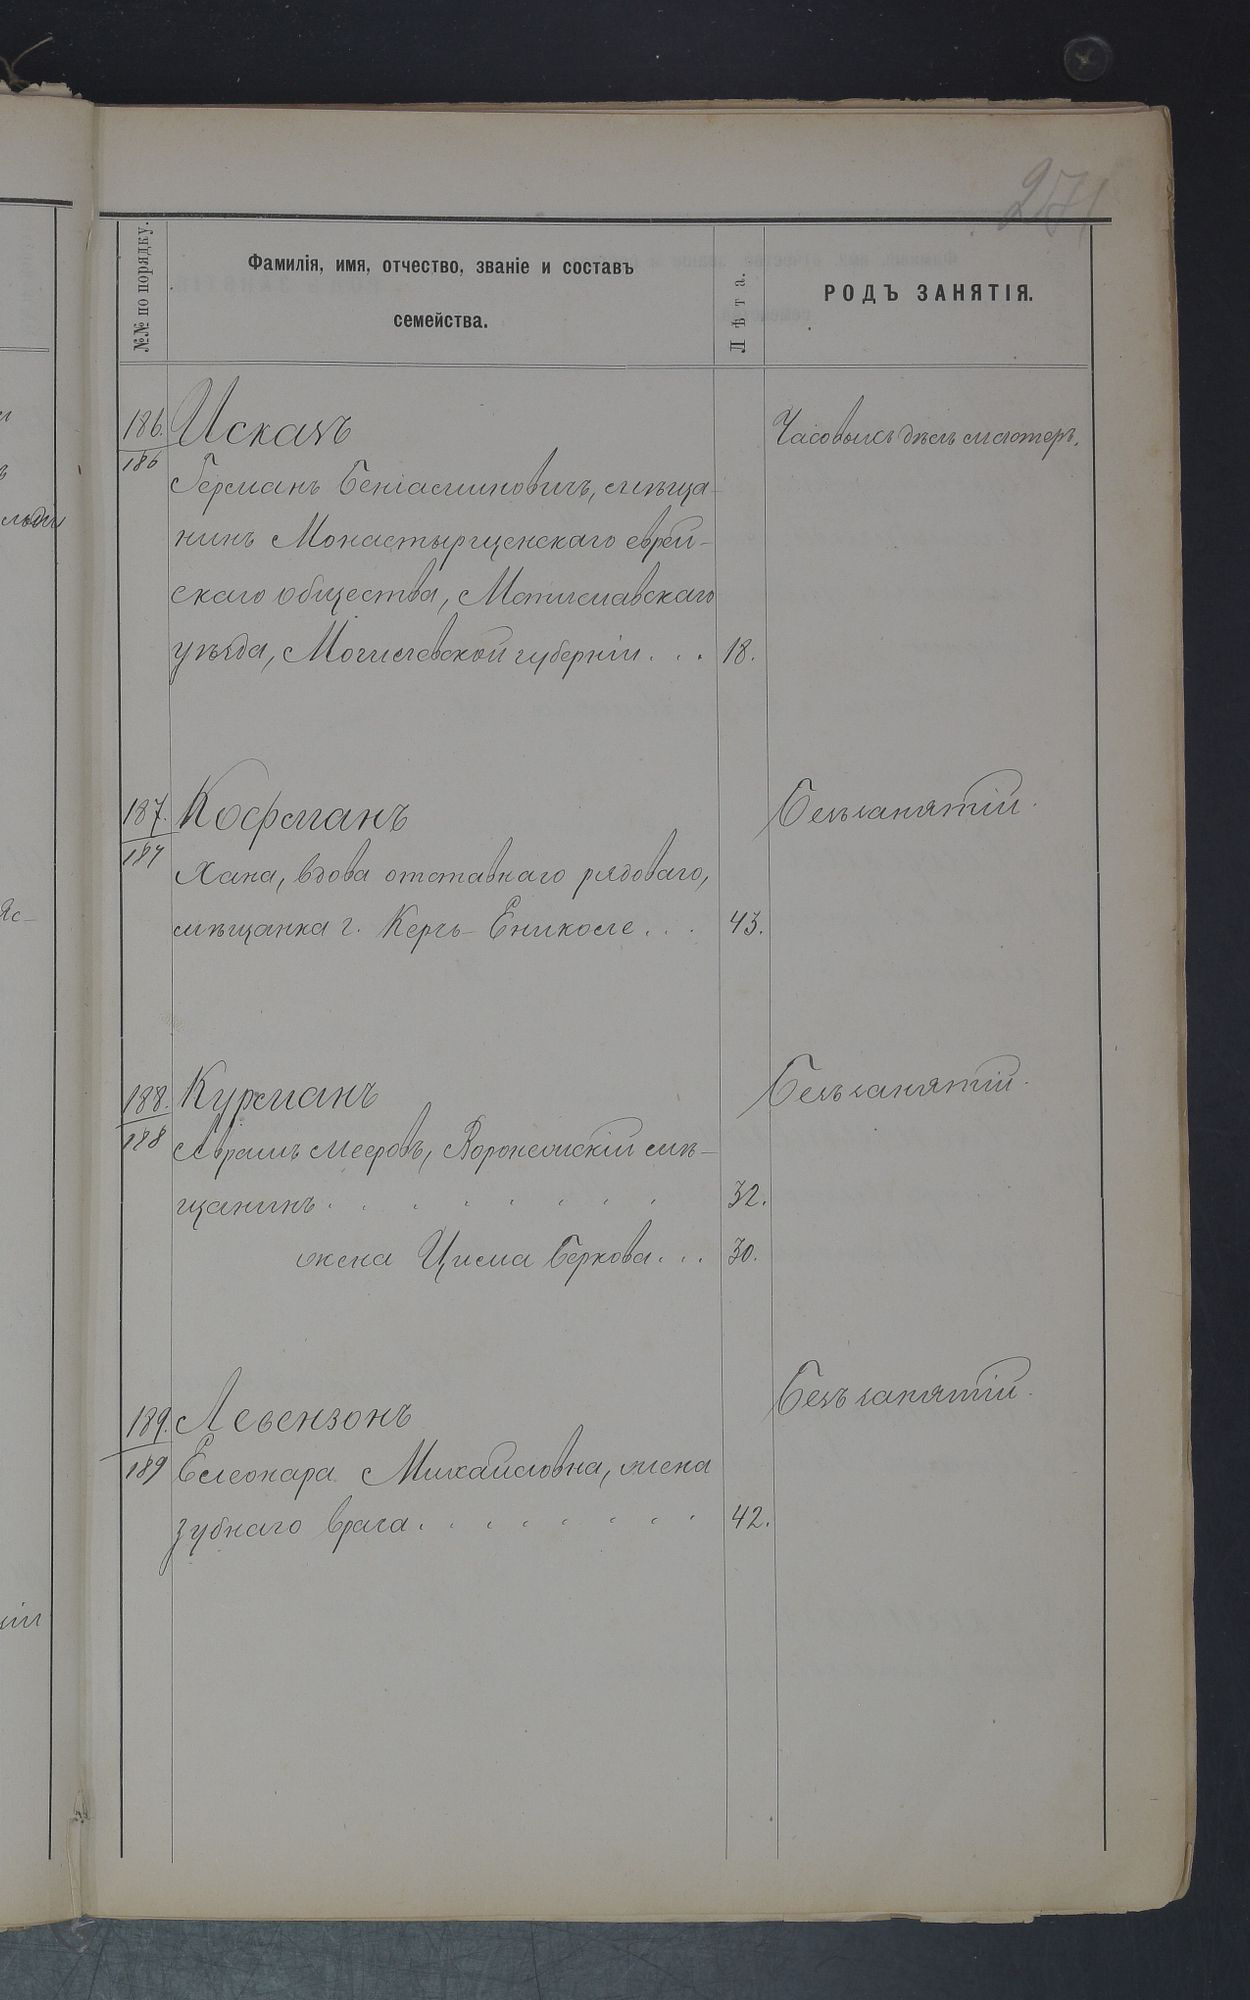 271
№№ по порядку.
Фамилія, имя, отчество, званіе и составъ
семейства.
Лѣта.
РОДЪ ЗАНЯТІЯ.
186.
186
Искахъ
Часовыхъ дѣлъ мастеръ.
Германъ Беніаминовичъ, мѣща-
нинъ Монастырщенскаго еврей-
скаго общества, Мстиславскаго
уѣзда, Могилевской губерніи . . . 18.
187.
187
Кофманъ
Безъ занятій.
Хана, вдова отставнаго рядоваго,
мѣщанка г. Керчь-Ениколе . . . 43.
188.
188
Курманъ
Безъ занятій.
Аврамъ Мееровъ, Воронежскій мѣ-
щанинъ . . . . . . . . 32.
жена Циема Беркова . . . 30.
189.
189
Левензонъ
Безъ занятій.
Елеонара Михайловна, жена
зубнаго врача . . . . . . . . . 42.